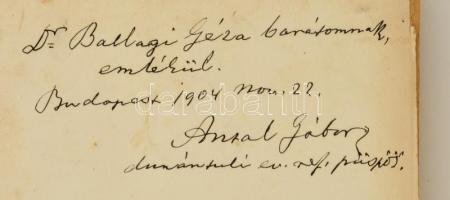 Dr. Ballagi Géza barátomnak,
emlékül.
Budapest 1904 nov. 22.
darabanth
Antal Gábor
dunántuli ev. ref. püspök.